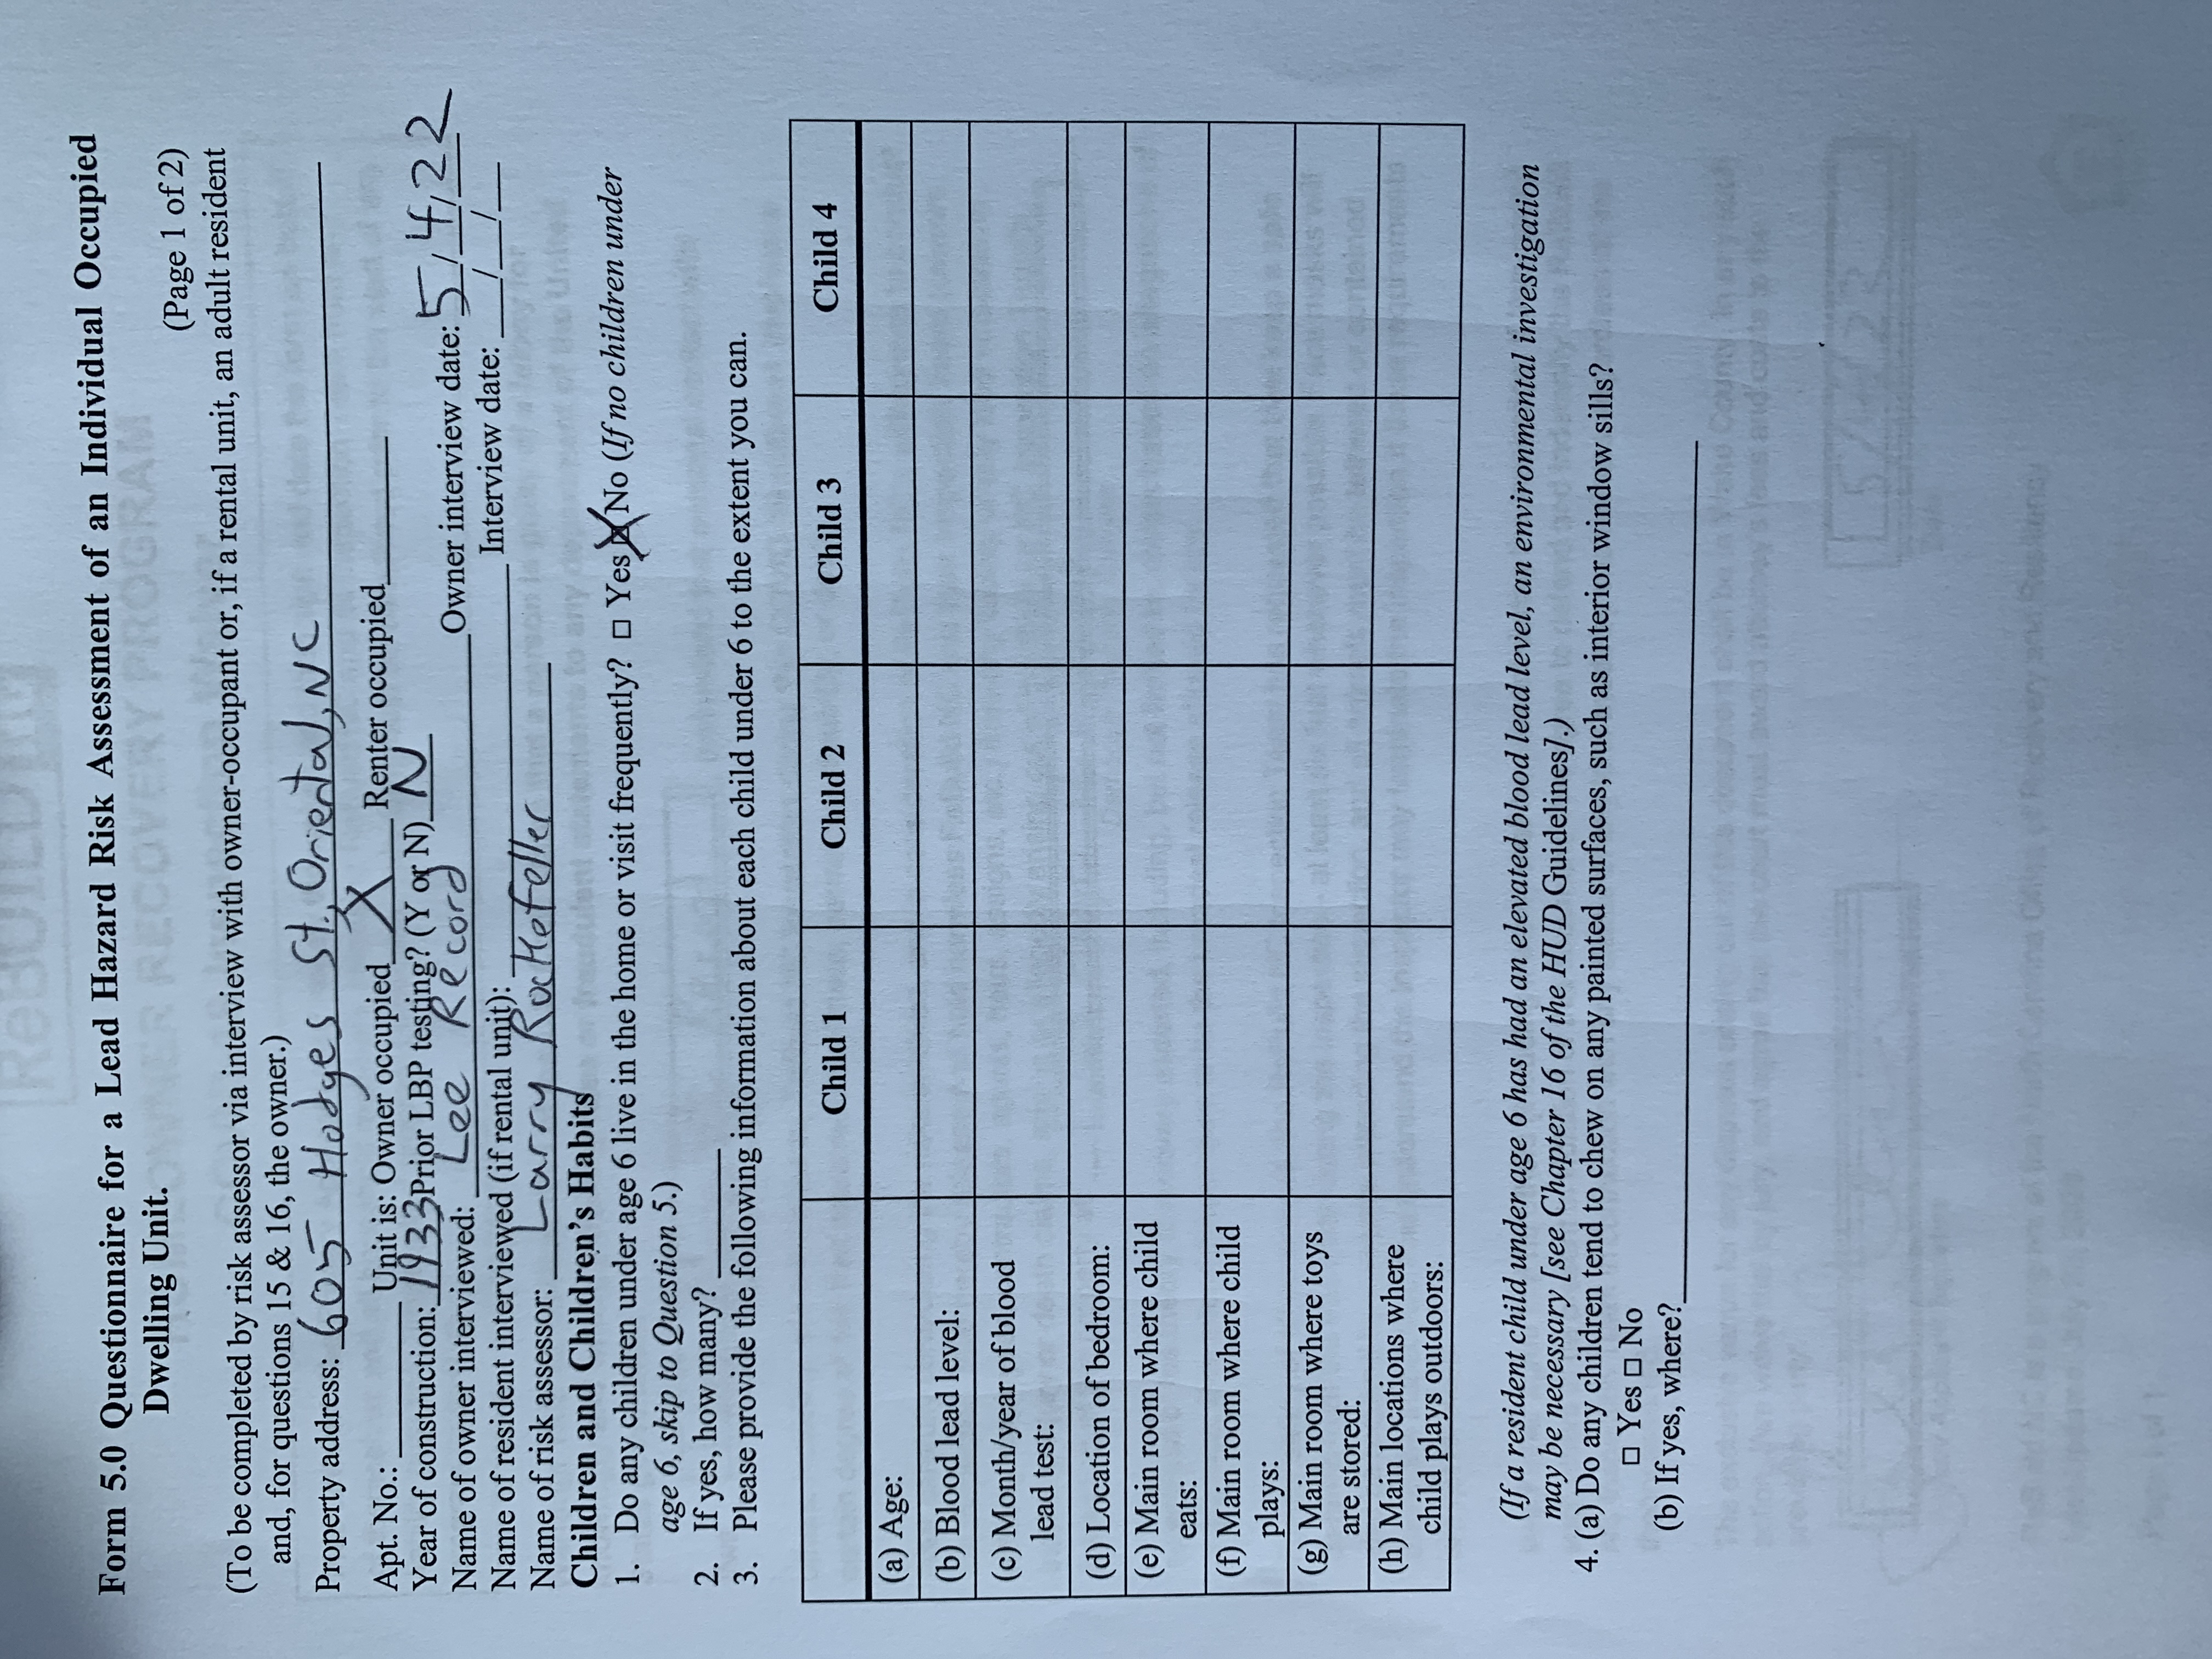 ReBUILD NC
Form 5.0 Questionnaire for a Lead Hazard Risk Assessment of an Individual Occupied
Dwelling Unit.
HOMEOWNER RECOVERY PROGRAM
(Page 1 of 2)
(To be completed by risk assessor via interview with owner-occupant or, if a rental unit, an adult resident
and, for questions 15 & 16, the owner.)
Property address: 605 Hodges St., Oriental, NC
Apt. No.: ________ Unit is: Owner occupied X Renter occupied________
Year of construction: 1933 Prior LBP testing? (Y or N) N
Name of owner interviewed: Lee Record Owner interview date: 5/4/22
Name of resident interviewed (if rental unit): ________ Interview date: ___/___/___
Name of risk assessor: Larry Rockefeller
Children and Children's Habits
1. Do any children under age 6 live in the home or visit frequently? □ Yes ☒ No (If no children under
age 6, skip to Question 5.)
2. If yes, how many? ________
3. Please provide the following information about each child under 6 to the extent you can.
Child 1 Child 2 Child 3 Child 4
(a) Age:
(b) Blood lead level:
(c) Month/year of blood
lead test:
(d) Location of bedroom:
(e) Main room where child
eats:
(f) Main room where child
plays:
(g) Main room where toys
are stored:
(h) Main locations where
child plays outdoors:
(If a resident child under age 6 has had an elevated blood lead level, an environmental investigation
may be necessary [see Chapter 16 of the HUD Guidelines].)
4. (a) Do any children tend to chew on any painted surfaces, such as interior window sills?
□ Yes □ No
(b) If yes, where?________